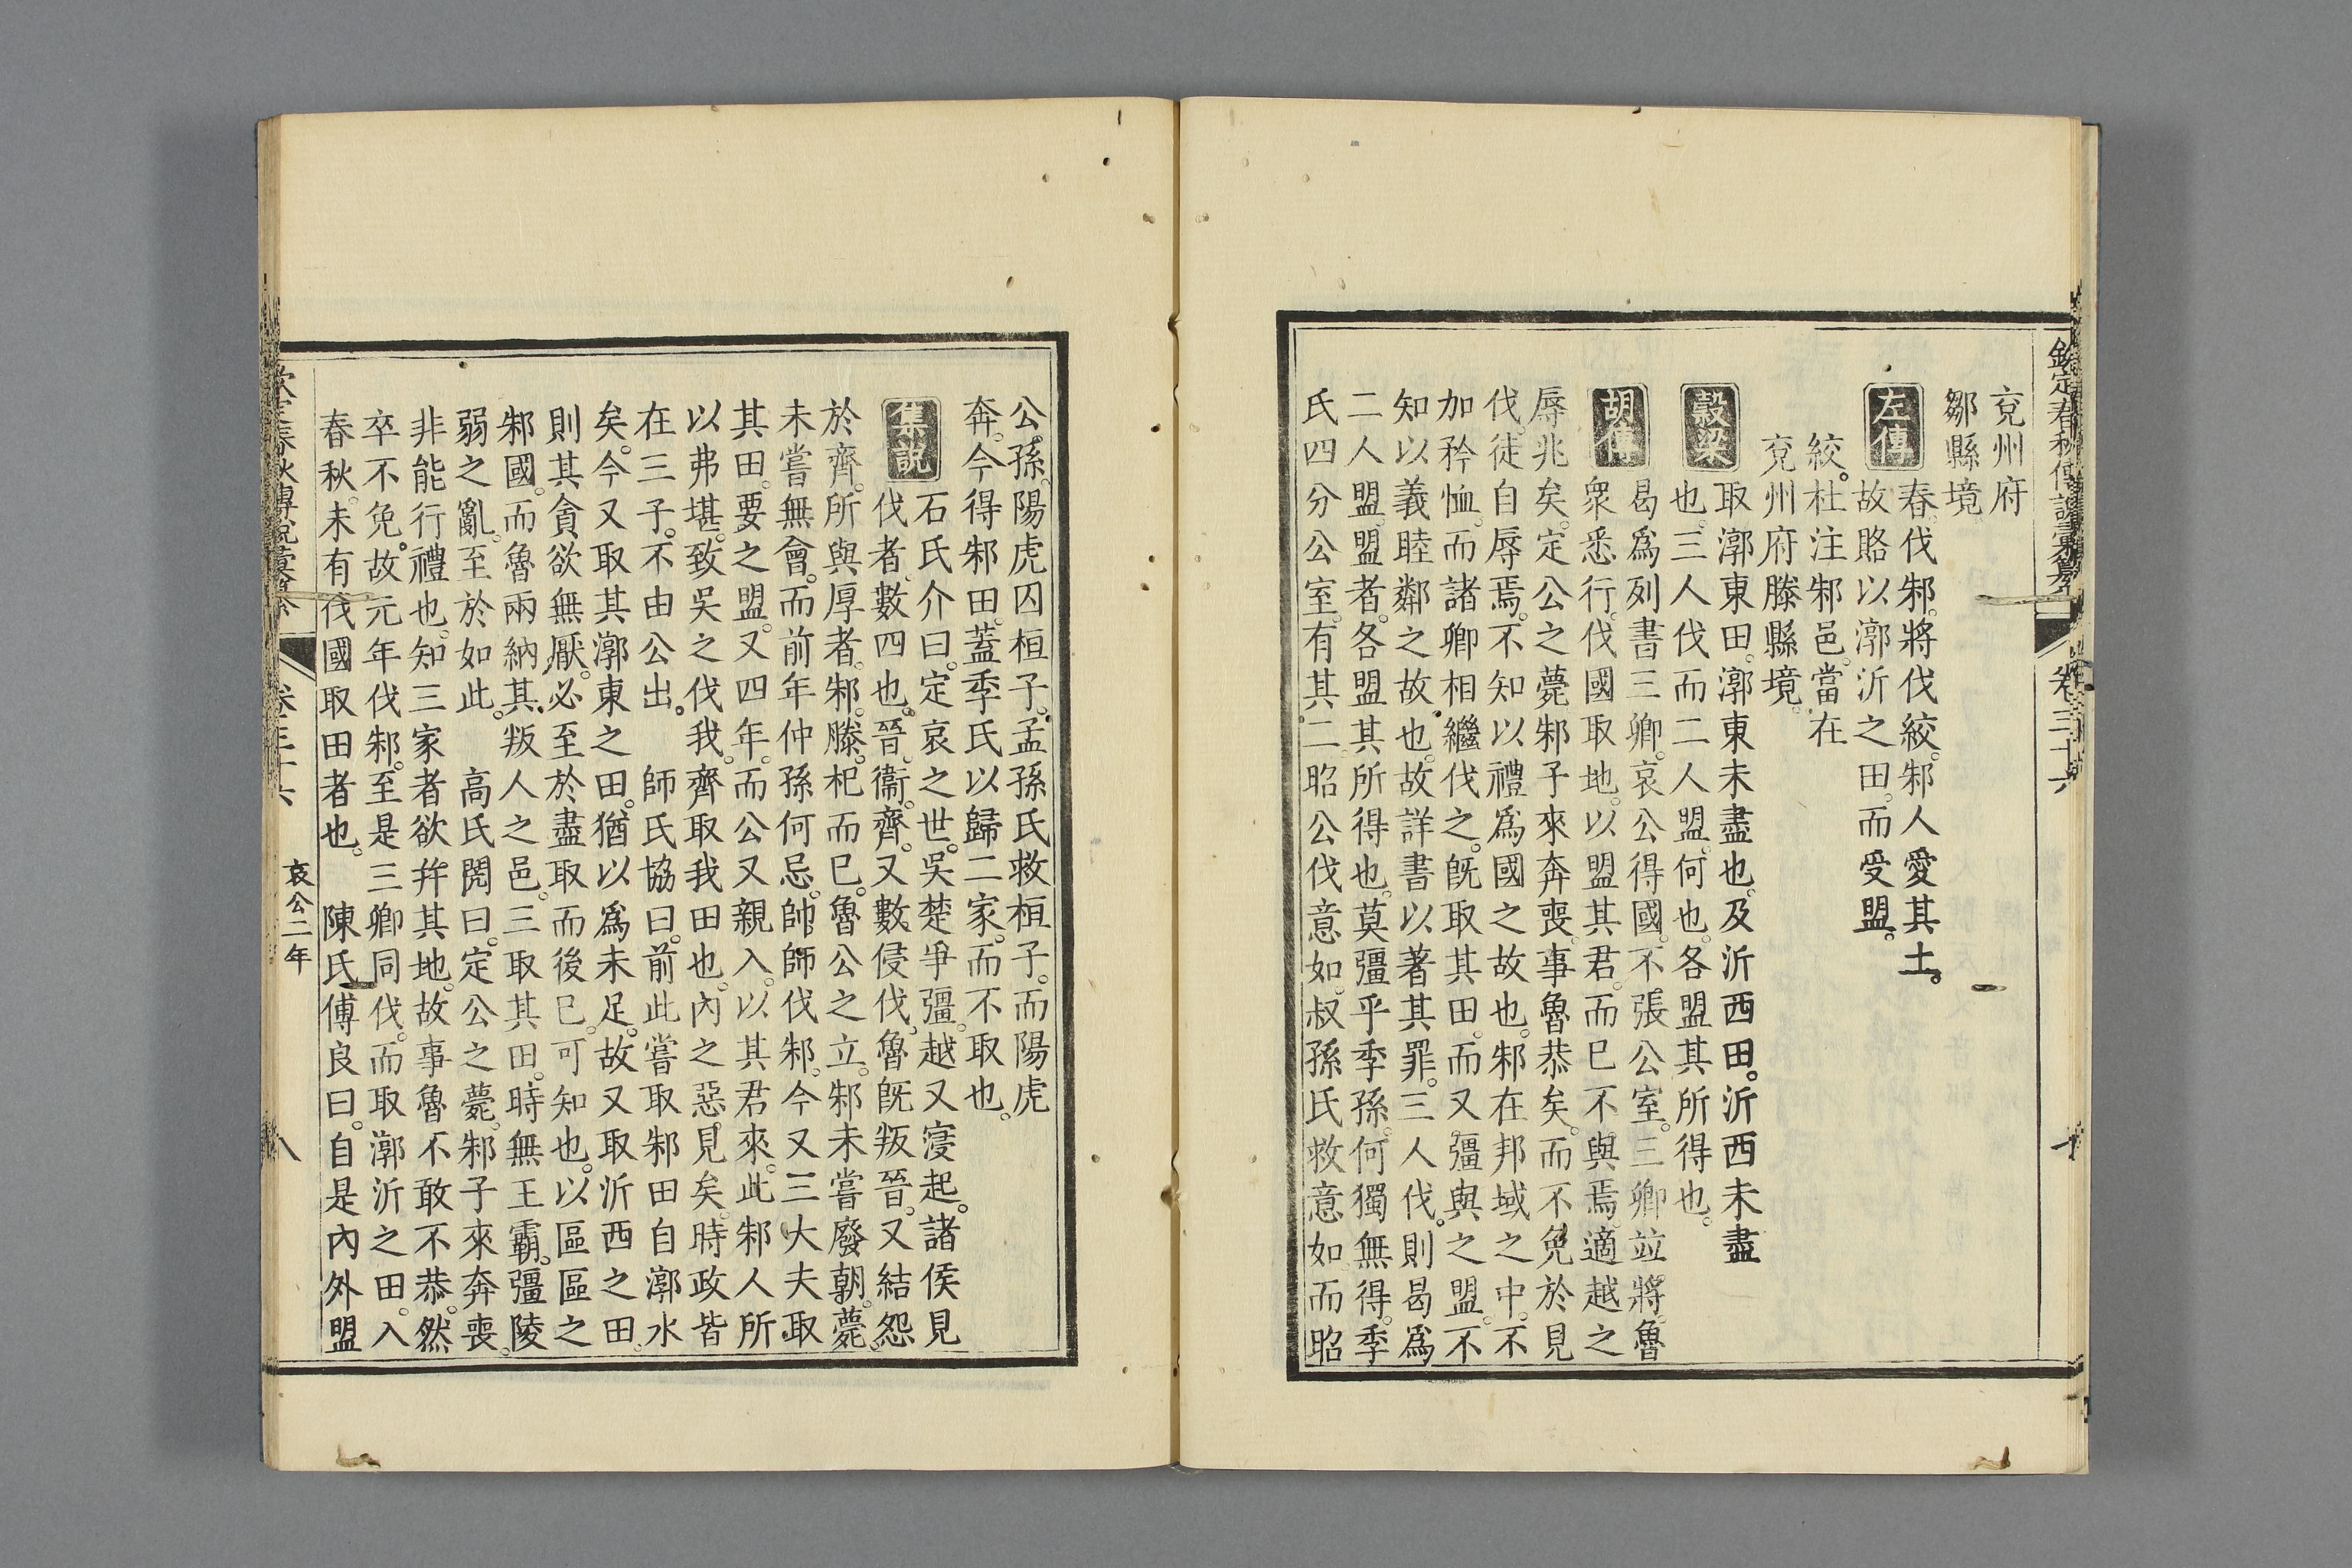 兗州府
鄒縣境
左傳
春。伐邾。將伐絞。邾人愛其土。
故賂以漷沂之田。而受盟。
絞。杜注邾邑。當在
兗州府滕縣境。
取漷東田。漷東未盡也。及沂西田。沂西未盡
穀梁
也。三人伐而二人盟。何也。各盟其所得也。
曷爲列書三卿。哀公得國。不張公室。三卿竝將。魯
胡傳
衆悉行。伐國取地。以盟其君。而已不與焉。適越之
辱兆矣。定公之薨。邾子來奔喪。事魯恭矣。而不免於見
伐。徒自辱焉。不知以禮爲國之故也。邾在邦域之中。不
加矜恤。而諸卿相繼伐之。旣取其田。而又彊與之盟。不
知以義睦鄰之故也。故詳書以著其罪。三人伐。則曷爲
二人盟。盟者。各盟其所得也。莫彊乎季孫。何獨無得。季
氏四分公室。有其二。昭公伐意如。叔孫氏救意如。而昭
公孫。陽虎囚桓子。孟孫氏救桓子。而陽虎
奔。今得邾田。蓋季氏以歸二家。而不取也。
集說
石氏介曰。定哀之世。吳楚爭彊。越又寖起。諸侯見
伐者。數四也。晉。衞。齊。又數侵伐。魯旣叛晉。又結怨
於齊。所與厚者。邾。滕。杞而已。魯公之立。邾未嘗廢朝。薨。
未嘗無會。而前年仲孫何忌。帥師伐邾。今又三大夫取
其田。要之盟。又四年。而公又親入。以其君來。此邾人所
以弗堪。致吳之伐我。齊取我田也。內之惡。見矣。時政皆
在三子。不由公出。 師氏協曰。前此嘗取邾田自漷水
矣。今又取其漷東之田。猶以爲未足。故又取沂西之田。
則其貪欲無厭。必至於盡取而後已。可知也。以區區之
邾國。而魯兩納其叛人之邑。三取其田。時無王霸。彊陵
弱之亂。至於如此。 高氏閌曰。定公之薨。邾子來奔喪。
非能行禮也。知三家者欲幷其地。故事魯不敢不恭。然
卒不免。故元年伐邾。至是三卿同伐。而取漷沂之田。入
春秋。未有伐國取田者也。 陳氏傅良曰。自是內外盟
哀公二年
八